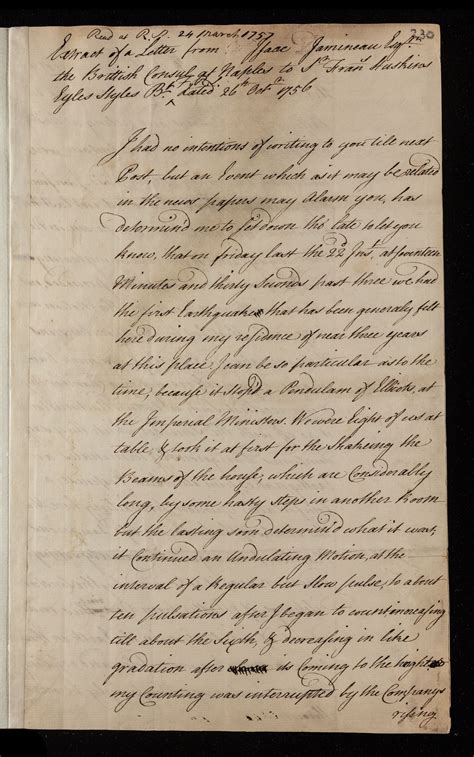 Read at R.S. 24 March 1757
230
Extract of a Letter from Isaac Jamineau Esqr.
the British Consul at Naples to Sr. Frans. Haskins
Eyles Styles Bt. dated 26th Octr. 1756
I had no intentions of writing to you till next
Post, but an Event which as it may be related
in the news papers may Alarm you, has
determin'd me to sit down tho' late to let you
know, that on friday last the 22d Inst. at fourteen
Minutes and thirty Seconds past three we had
the first Earthquake that has been generaly felt
here during my residence of near three years
at this place I can be so particular as to the
time, because it stop'd a Pendulam of Ellicots, at
the Imperial Ministers. We were Eight of us at
table, & took it at first for the Shakeing the
Beams of the house, which are Considerably
long, by some hasty Steps in another Room
but the lasting soon determin'd what it was,
it Continued an Undulating Motion, at the
interval of a Regular but Slow pulse, to about
ten pulsations after I began to count increasing
till about the Sixth, & decreasing in like
gradation after its Coming to the height
my Counting was interrupted by the Companys
rising